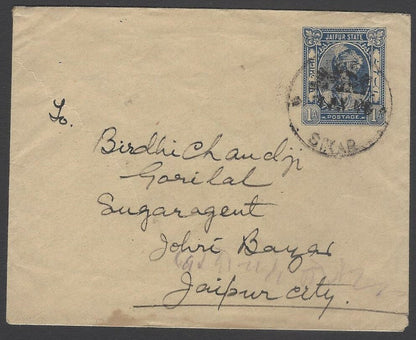 JAIPUR STATE
POSTAGE
SIKAR
To.
Birdhichandji
Gorilal
Sugaragent
Johri Bazar
Jaipur City.